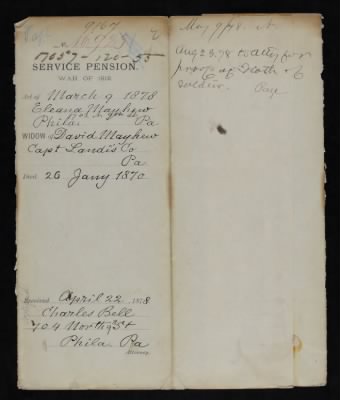 9767
No 925
17057-120-55
SERVICE PENSION.
WAR OF 1812
Act of March 9 1878
Eleana Mayhew
Phila Pa
WIDOW of David Mayhew
Capt Landis Co
Pa
Died 26 Jany 1870
Received April 22, 1878
Charles Bell
704 North 9 St
Phila Pa
Attorney.
May 9/78.
Aug 23.78 to atty for
proof of death of
soldier.